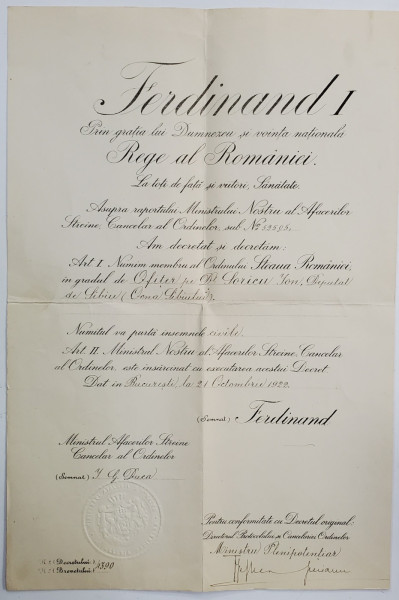 Ferdinand I
Prin grația lui Dumnezeu și voința națională
Rege al României.
La toți de față și viitori, Sănătate.
Asupra raportului Ministrului Nostru al Afacerilor
Streine, Cancelar al Ordinelor, sub No
Am decretat și decretăm:
Art I. Numim membru al Ordinului Steaua României,
în gradul de Ofițer pe Soricu Ion, Deputat
de Sibiu (Ocna Sibiului).
Numitul va purtă insemnele civile.
Art. II. Ministrul Nostru al Afacerilor Streine, Cancelar
al Ordinelor, este însărcinat cu executarea acestui Decret.
Dat în București la 21 Octombrie 1922.
(Semnat) Ferdinand
Ministrul Afacerilor Streine
Cancelar al Ordinelor
(Semnat) I. G. Duca
Pentru conformitate cu Decretul original
Directorul Protocolului și Cancelariei Ordinelor
Ministru Plenipotențiar
Decretului
Brevetului 1390